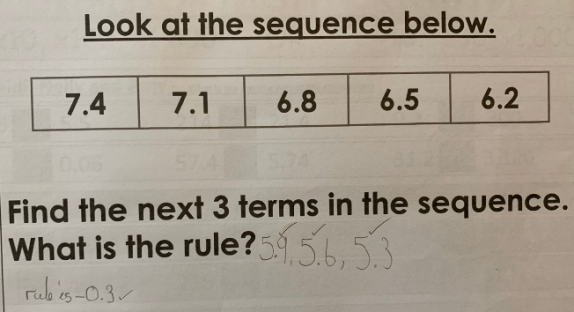 Look at the sequence below.
7.4 7.1 6.8 6.5 6.2
Find the next 3 terms in the sequence.
What is the rule? 5.9, 5.6, 5.3
rule is -0.3 ✓